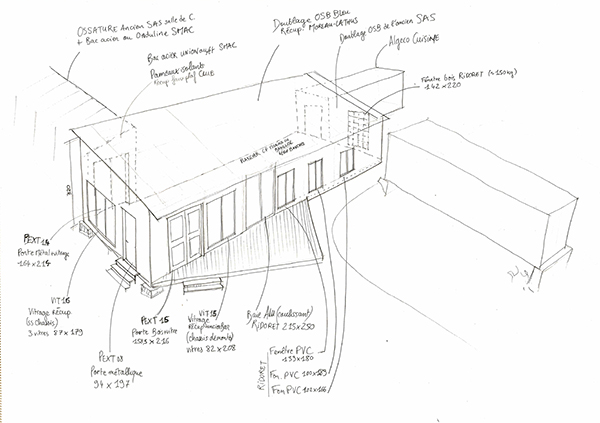 OSSATURE Ancien SAS salle de C
+ Bac acier ou Onduline SMAC
Bac acier UNION ou ff SMAC
Panneaux-solant
Récup faux plaf CLUB
Doublage OSB Bleu
Récup: MOREAU-LATHUS
Doublage OSB de l'ancien SAS
Algeco CUISINE
Fenêtre bois RIDORET (≈150kg)
~142x220
PEXT 14
Porte Métal vitrage
~164x214
VIT 16
Vitrage Récup.
(ss chassis)
3 vitres 87x179
PEXT 08
Porte métallique
94x197
PEXT 15
Porte Bois vitre
159,5x216
VIT 15
Vitrage
(chassis démonté)
vitres 82x208
Baie Alu (coulissant)
RIDORET 215x250
RIDORET
Fenêtre PVC
139x180
Fen. PVC 100x189
Fen PVC 102x166